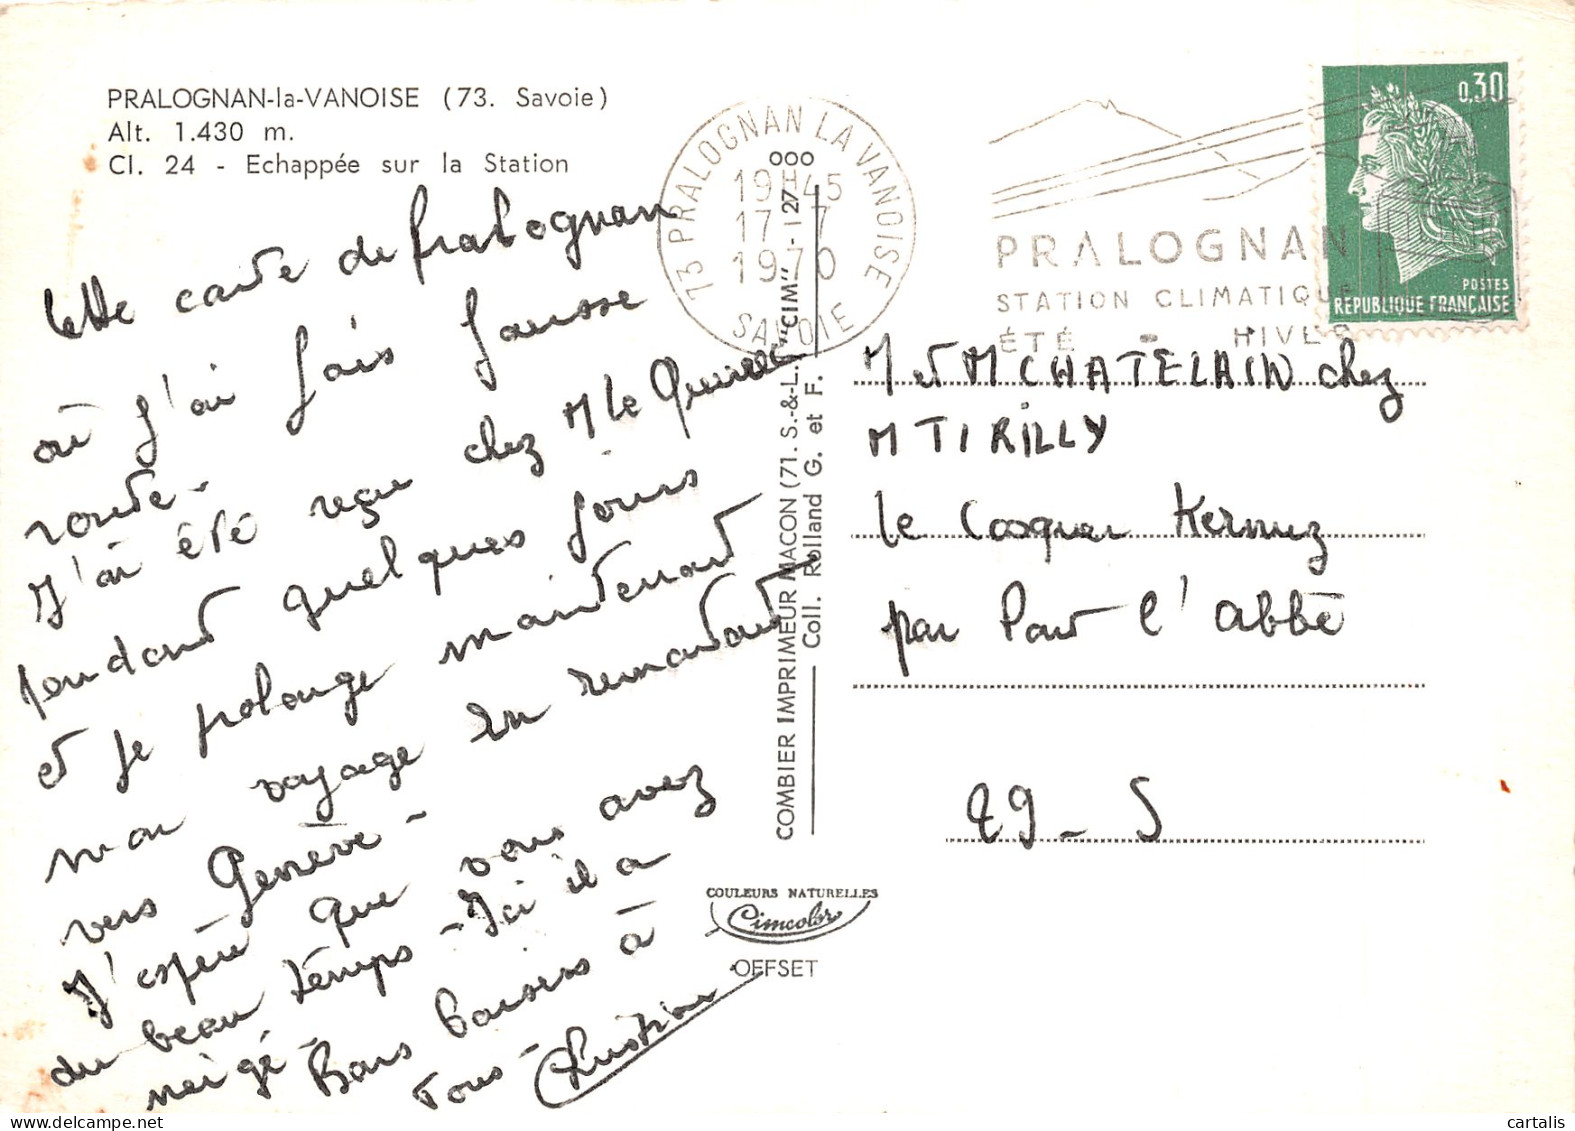 PRALOGNAN-la-VANOISE (73. Savoie)
Alt. 1.430 m.
Cl. 24 - Echappée sur la Station
Cette carte de Pralognan
où j'ai fais fausse
route -
J'ai été reçu chez M le
pendant quelques jours
et je prolonge maintenant
mon voyage en remontant
vers Genève -
J'espère que vous avez
du beau temps - Ici il a
neigé - Bons baisers à
tous - Christian
73 PRALOGNAN LA VANOISE
19H45
17 - 7
1970
SAVOIE
PRALOGNAN
STATION CLIMATIQUE
ÉTÉ - HIVER
0,30
POSTES
REPUBLIQUE FRANÇAISE
COMBIER IMPRIMEUR MACON (71. S.-&-L.) "CIM" - 127 ooo
Coll. Rolland G. et F.
M et M CHATELAIN chez
M TIRILLY
le Cosquer Kernuz
par Pont l'abbé
29 - S
COULEURS NATURELLES
Cimcolor
OFFSET
cartalis